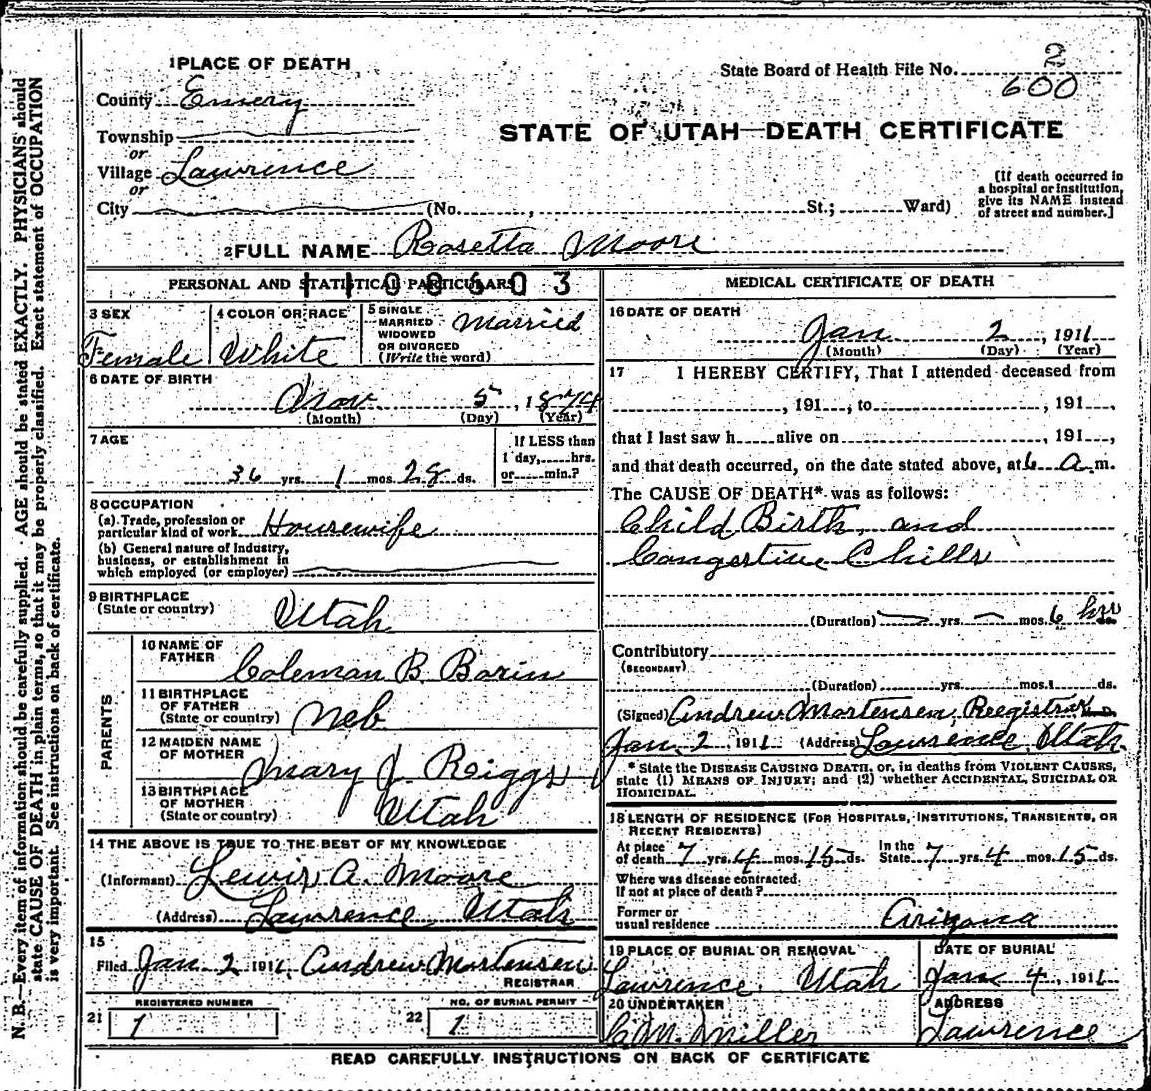 1 PLACE OF DEATH
State Board of Health File No. 2
600
County Emery
STATE OF UTAH—DEATH CERTIFICATE
Township
or
Village Lawrence
or
City (No. , St.; Ward)
[If death occurred in
a hospital or institution,
give its NAME instead
of street and number.]
2 FULL NAME Rosetta Moore
PERSONAL AND STATISTICAL PARTICULARS
1108603
3 SEX
Female
4 COLOR OR RACE
White
5 SINGLE
MARRIED
WIDOWED
OR DIVORCED
(Write the word)
Married
6 DATE OF BIRTH
Nov 5, 1874
(Month) (Day) (Year)
7 AGE
36 yrs. 1 mos. 28 ds.
If LESS than
1 day, hrs.
or min.?
8 OCCUPATION
(a) Trade, profession or
particular kind of work Housewife
(b) General nature of industry,
business, or establishment in
which employed (or employer)
9 BIRTHPLACE
(State or country)
Utah
PARENTS
10 NAME OF
FATHER
Coleman B. Borin
11 BIRTHPLACE
OF FATHER
(State or country)
Neb
12 MAIDEN NAME
OF MOTHER
Mary J Reiggs
13 BIRTHPLACE
OF MOTHER
(State or country)
Utah
14 THE ABOVE IS TRUE TO THE BEST OF MY KNOWLEDGE
(Informant) Lewis A. Moore
(Address) Lawrence Utah
15
Filed Jan 2 1911 Andrew Mortensen
REGISTRAR
REGISTERED NUMBER
21 1
NO. OF BURIAL PERMIT
22 1
MEDICAL CERTIFICATE OF DEATH
16 DATE OF DEATH
Jan 2, 1911
(Month) (Day) (Year)
17 I HEREBY CERTIFY, That I attended deceased from
, 191 , to , 191 ,
that I last saw h alive on , 191 ,
and that death occurred, on the date stated above, at 6 a m.
The CAUSE OF DEATH* was as follows:
Child Birth, and
Congestive Chills
(Duration) yrs. mos. 6 hrs ds.
Contributory
(SECONDARY)
(Duration) yrs. mos. ds.
(Signed) Andrew Mortensen, Reegistrar M. D.
Jan. 2 1911 (Address) Lawrence, Utah.
* State the DISEASE CAUSING DEATH, or, in deaths from VIOLENT CAUSES,
state (1) MEANS OF INJURY; and (2) whether ACCIDENTAL, SUICIDAL OR
HOMICIDAL.
18 LENGTH OF RESIDENCE (FOR HOSPITALS, INSTITUTIONS, TRANSIENTS, OR
RECENT RESIDENTS)
At place
of death 7 yrs. 4 mos. 15 ds. In the
State 7 yrs. 4 mos. 15 ds.
Where was disease contracted,
If not at place of death?
Former or
usual residence Arizona
19 PLACE OF BURIAL OR REMOVAL
Lawrence, Utah
DATE OF BURIAL
Jan 4, 1911
20 UNDERTAKER
C M. Miller
ADDRESS
Lawrence
READ CAREFULLY INSTRUCTIONS ON BACK OF CERTIFICATE
N. B.—Every item of information should be carefully supplied. AGE should be stated EXACTLY. PHYSICIANS should
state CAUSE OF DEATH in plain terms, so that it may be properly classified. Exact statement of OCCUPATION
is very important. See instructions on back of certificate.